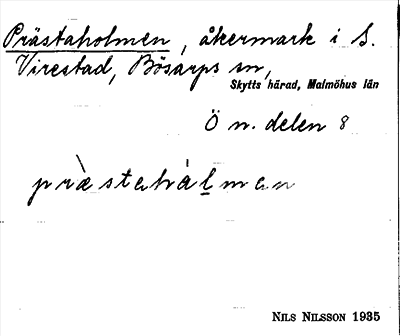 Prästaholmen, åkermark i S.
Virestad, Bösarps sn,
Skytts härad, Malmöhus län
Ö n. delen 8
præ̀stahál̲man
NILS NILSSON 1935